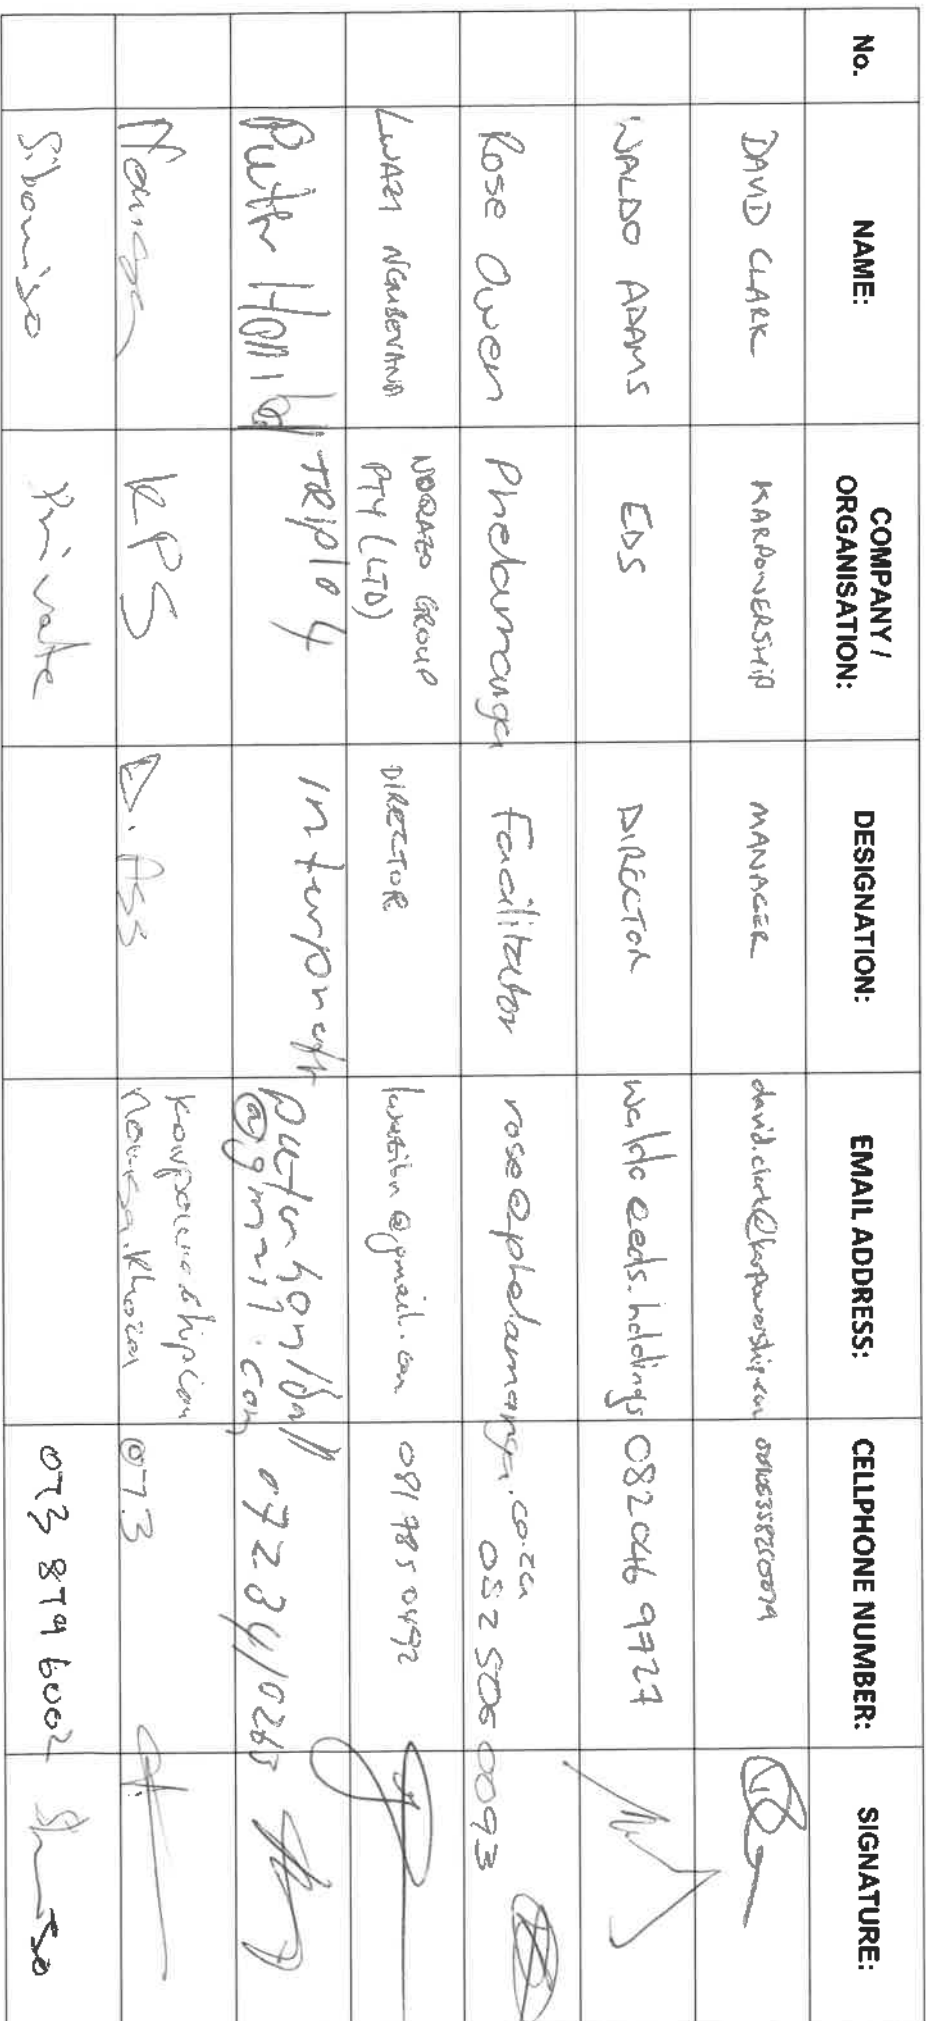 No. NAME: COMPANY / ORGANISATION: DESIGNATION: EMAIL ADDRESS: CELLPHONE NUMBER: SIGNATURE:
DAVID CLARK KARPOWERSHIP MANAGER david.clark@karpowership.com
WALDO ADAMS EDS DIRECTOR waldo@eds.holdings 082 046 9727
Rose Owen Phelamanga Facilitator rose@phelamanga.co.za 082 506 0093
LWAZI NDORAZO GROUP PTY (LTD) DIRECTOR @gmail.com 081 785 0492
TRIPlO4 @gmail.com 0723410265
KPS D. Ass karpowership.com @073
Siboniso Private 073 879 6002